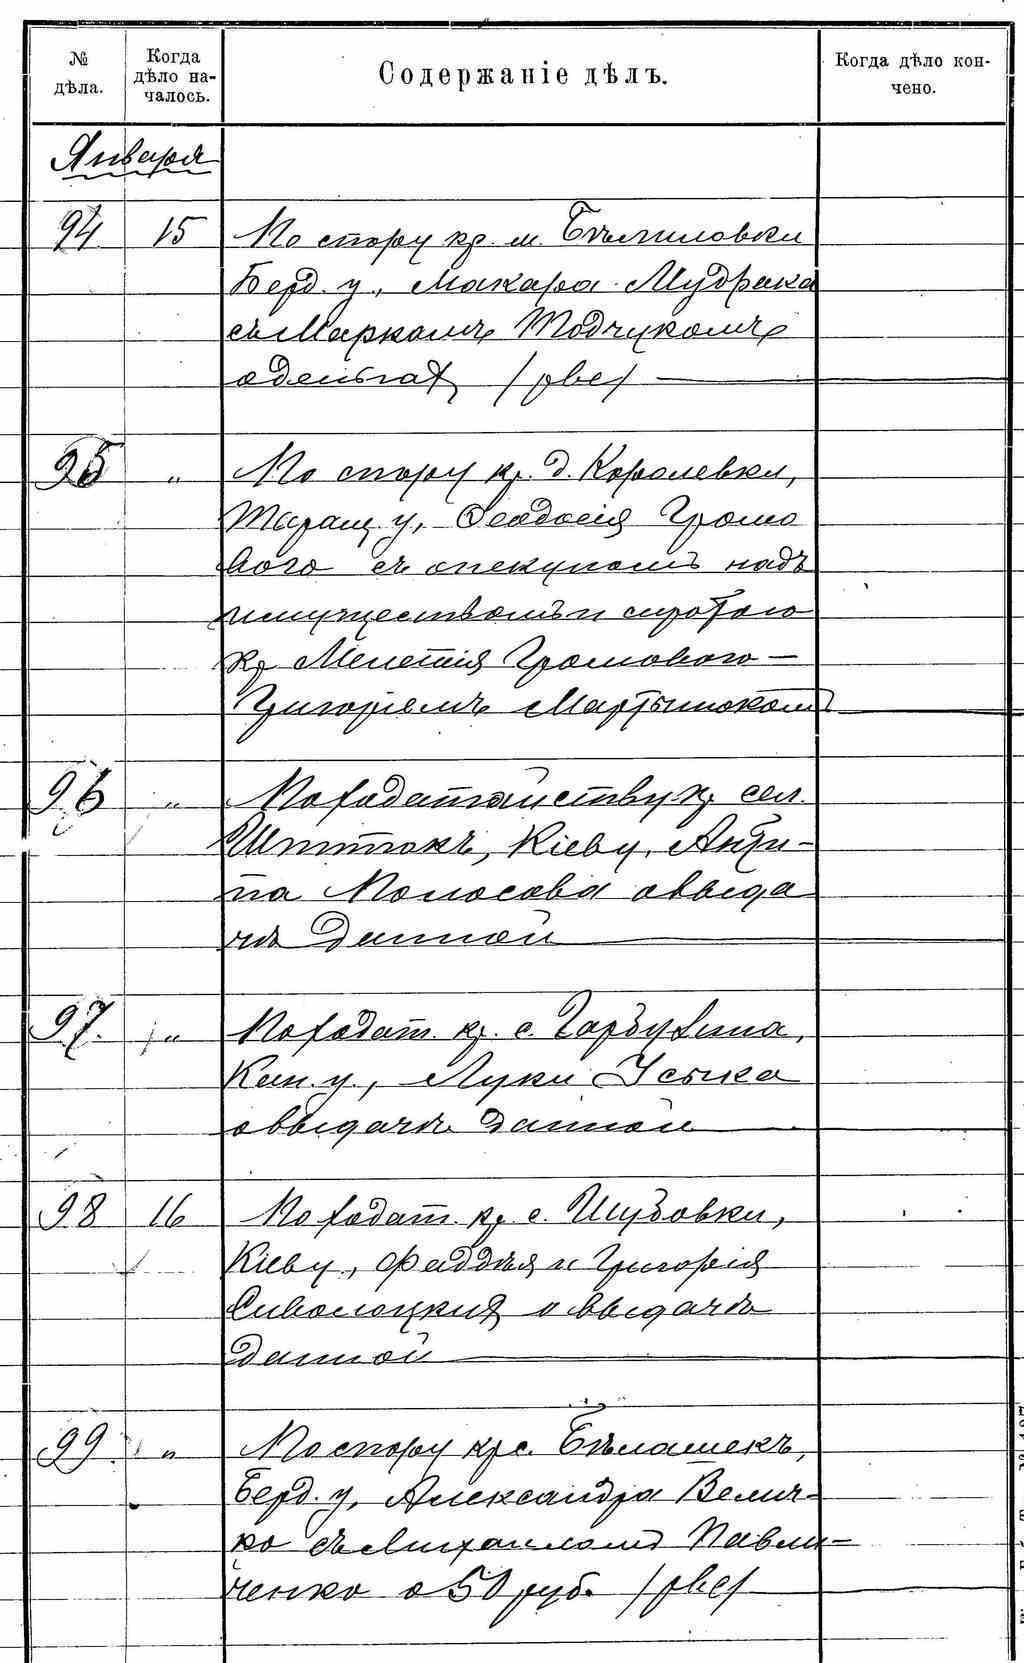 № дѣла.
Когда дѣло началось.
Содержаніе дѣлъ.
Когда дѣло кончено.
Января
94 15 По спору кр. м. Бѣлиловки
Берд. у., Макара Мудрака
съ Маркомъ Тодчукомъ
о деньгах /рвс/
95 " По спору кр. д. Королевки,
Таращ. у., Феодосія Громо
вого съ опекуномъ надъ
имуществомъ и сиротою
кр. Мелетія Громового —
Григоріемъ Мартынюкомъ
96 " По ходатайству кр. сел.
Шпитокъ, Кіев у, Анти-
па Колосова о выда
чѣ данной
97. " По ходат. кр. с. Гарбузина,
Кан. у., Луки Усыка
о выдачѣ данной
98 16 По ходат. кр. с. Шубовки,
Кіев у, Фаддѣя и Григорія
Сиволоцких о выдачѣ
данной
99 " По спору кр с. Бѣлашекъ,
Берд. у, Александра Велич-
ко съ Михаиломъ Павли-
ченко о 50 руб. /рвс/